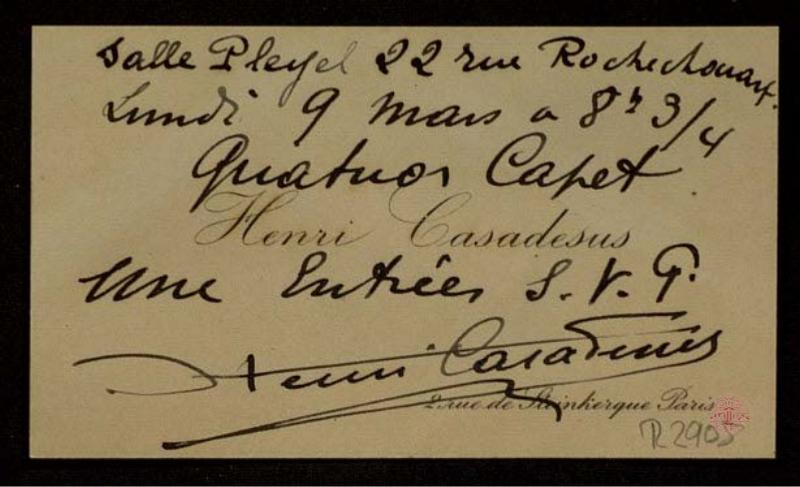 Salle Pleyel 22 rue Rochechouart.
Lundi 9 Mars a 8h 3/4
Quatuor Capet
Henri Casadesus
Une Entrées S.V.P.
Henri Casadesus
2 rue de Steinkerque Paris
R 2905